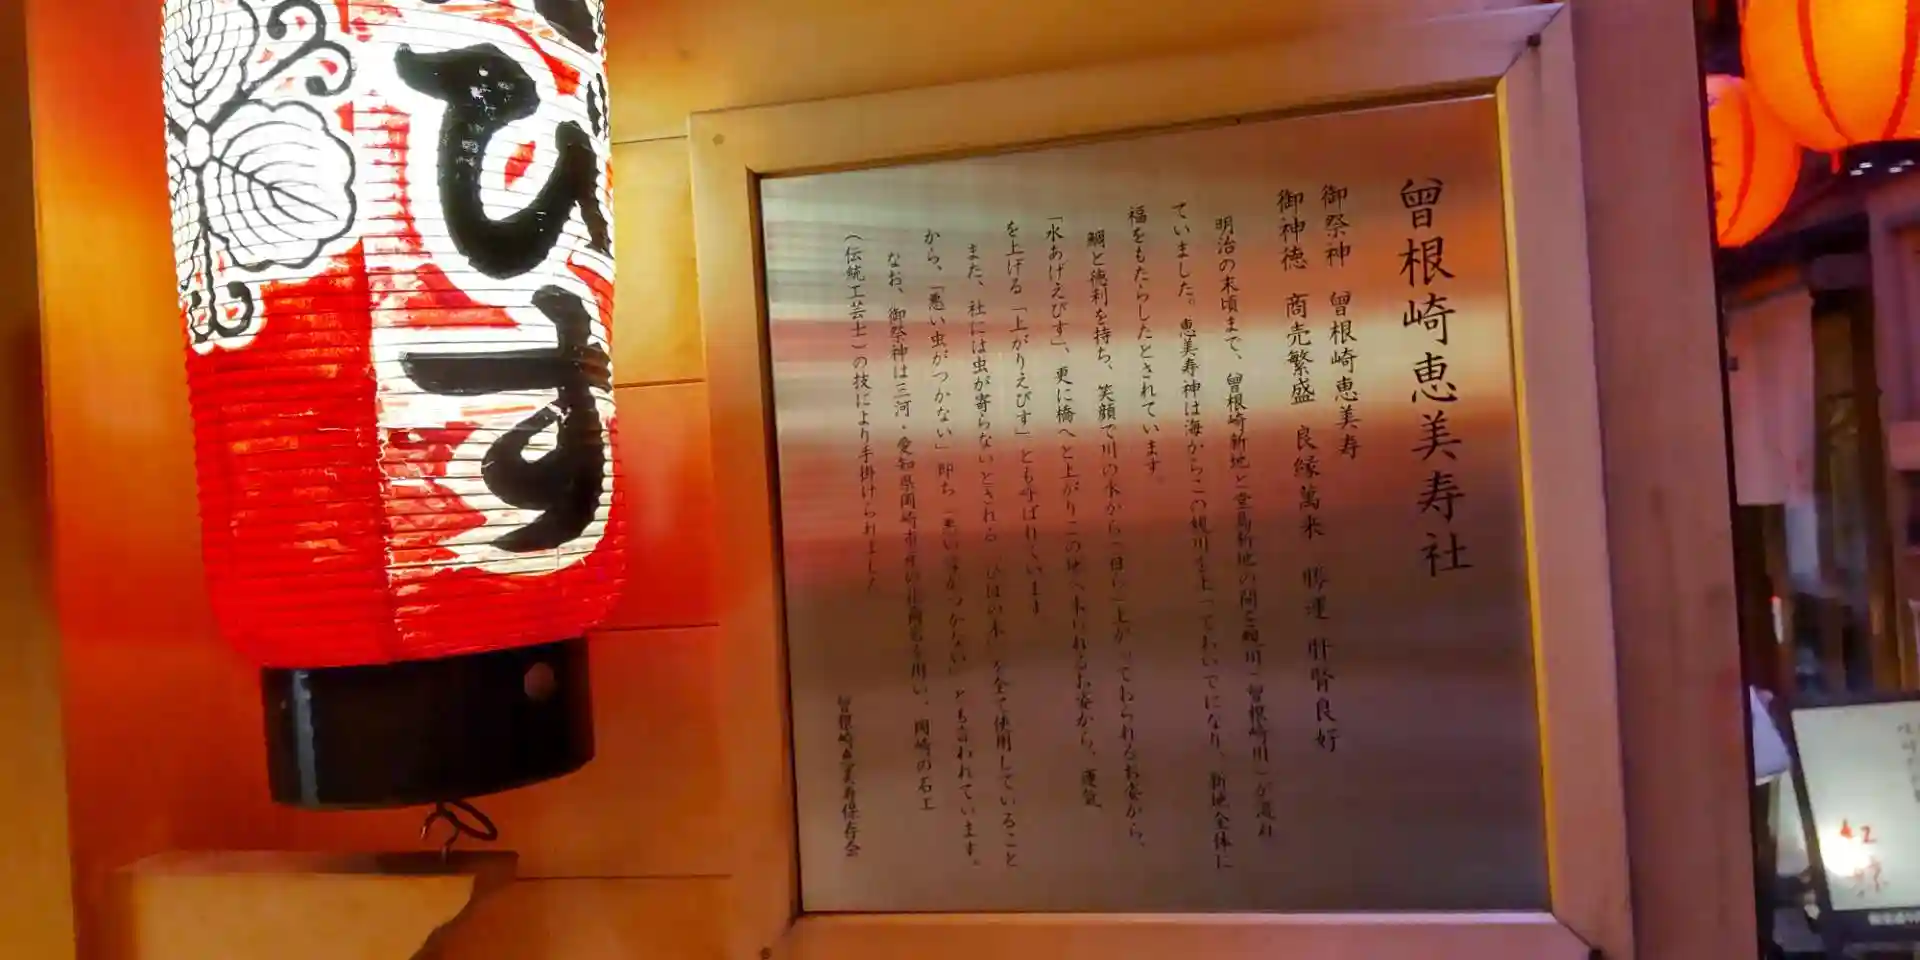 曾根崎恵美寿社
御祭神 曾根崎恵美寿
御神徳 商売繁盛 良縁萬来 勝運 肝腎良好
明治の末頃まで、曾根崎新地と堂島新地の間を蜆川(曾根崎川)が流れ
ていました。恵美寿神は海からこの蜆川を上っておいでになり、新地全体に
福をもたらしたとされています。
鯛と徳利を持ち、笑顔で川の水から上がっておられるお姿から、
「水あげえびす」、更に橋へと上がりこの地へ来られるお姿から、運気
を上げる「上がりえびす」とも呼ばれています
また、社には虫が寄らないとされる を全て使用していること
から、「悪い虫がつかない」即ち「悪い がつかない」とも言われています。
なお、御祭神は三河・愛知県岡崎市産の を用い、岡崎の石工
(伝統工芸士)の技により手掛けられました
曾根崎恵美寿保存会
びす